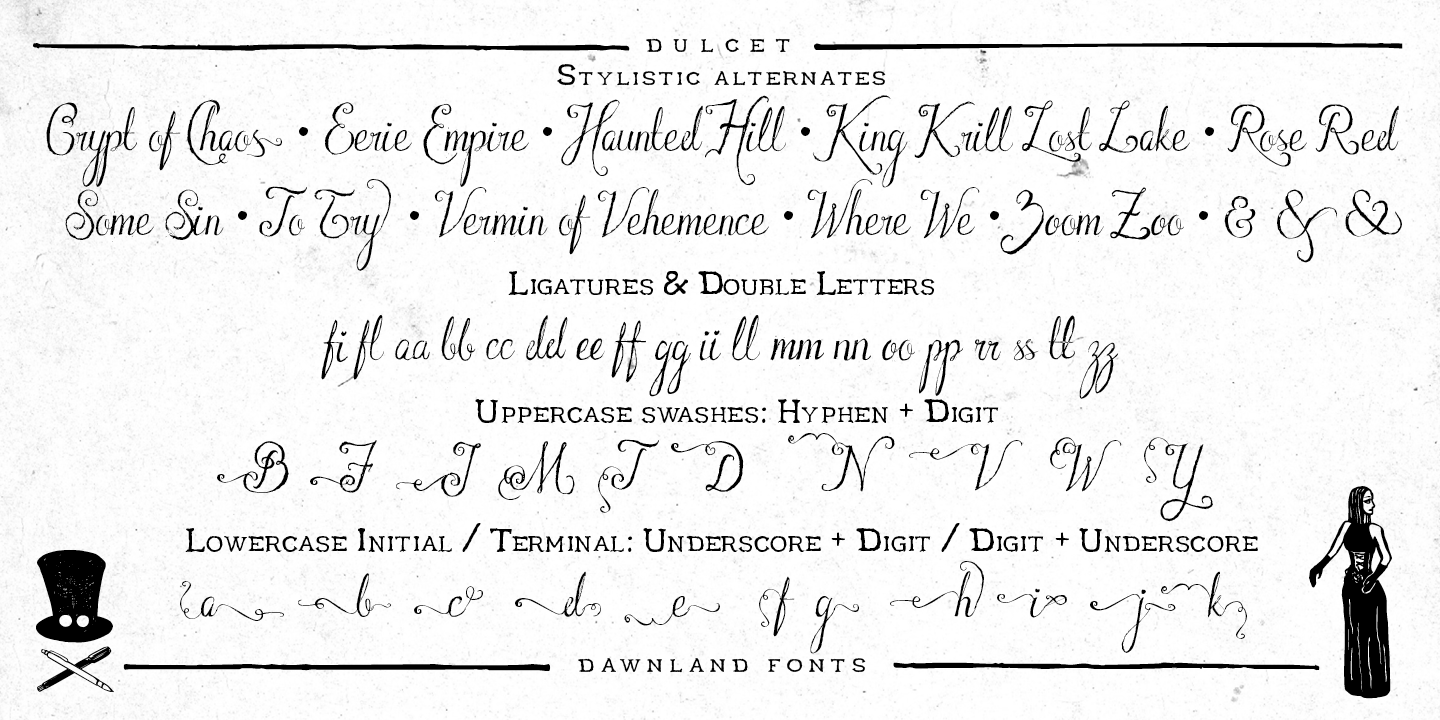 DULCET
STYLISTIC ALTERNATES
Crypt of Chaos • Eerie Empire • Haunted Hill • King Krill Lost Lake • Rose Red
Some Sin • To Try • Vermin of Vehemence • Where We • Zoom Zoo • & & &
LIGATURES & DOUBLE LETTERS
fi fl aa bb cc dd ee ff gg ii ll mm nn oo pp rr ss tt zz
UPPERCASE SWASHES: HYPHEN + DIGIT
B F J M T D N V W Y
LOWERCASE INITIAL / TERMINAL: UNDERSCORE + DIGIT / DIGIT + UNDERSCORE
a b c d e f g h i j k
DAWNLAND FONTS